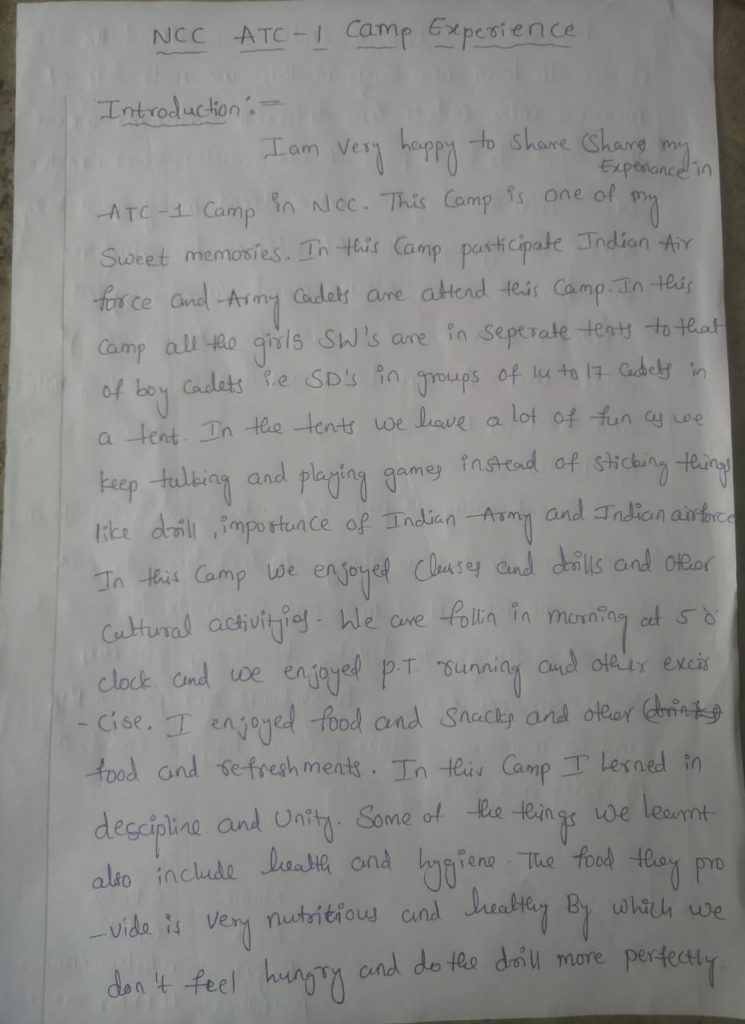 NCC ATC-1 Camp Experience
Introduction:=
I am very happy to share (Share my
Experiance in
ATC-1 Camp in NCC. This Camp is one of my
Sweet memories. In this Camp participate Indian Air
force and Army Cadets are attend this Camp. In this
Camp all the girls SW's are in seperate tents to that
of boy Cadets i.e SD's in groups of 14 to 17 Cadets in
a tent. In the tents we have a lot of fun as we
keep talking and playing games instead of sticking things
like drill, importance of Indian Army and Indian airforce
In this Camp we enjoyed Classes and drills and other
Cultural activitjies. We are follin in morning at 5 o'
clock and we enjoyed P.T. running and other excir
- cise. I enjoyed food and snacks and other (drinks)
food and refreshments. In this Camp I lerned in
descipline and Unity. Some of the things we learnt
also include health and hygiene. The food they pro
-vide is very nutritious and healthy By which we
don't feel hungry and do the drill more perfectly.